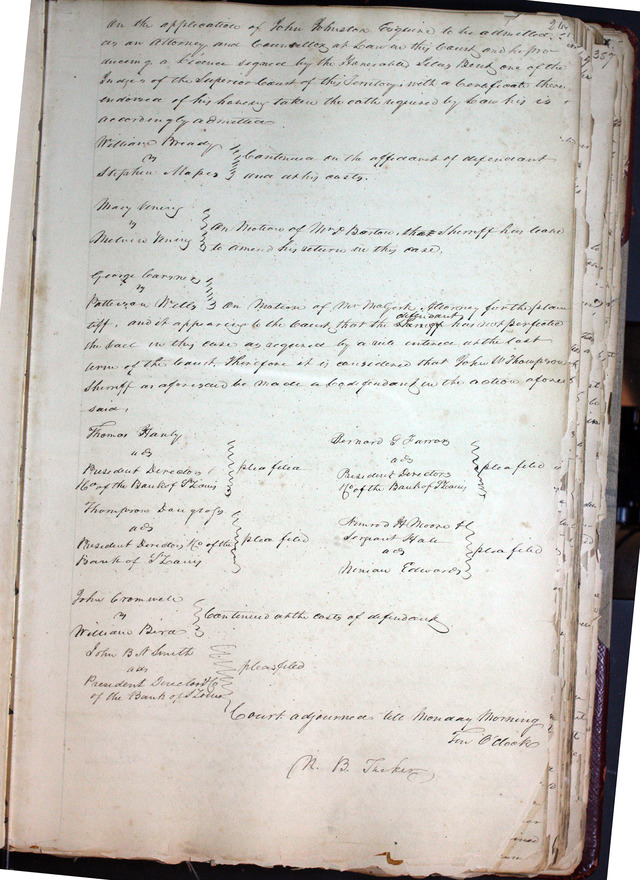 On the application of John Johnston Esquire to be admitted
as an Attorney and Councellor at Law in this Court and he pro
ducing a Licence signed by the Honerable Silas Bent one of the
Judges of the Superior Court of this Territory with a Certificate there
indorsed of his having taken the oath required by Law he is
accordingly admitted
William Bready
vs
Stephen Mapes
Continued on the affidavit of defendant
and at his costs.
Mary
vs
On Motion of Mr Barton, the Sherriff has leave
to amend his return in this case.
George
vs
Patterson
On Motion of Mr McGirk, Attorney for the plain
tiff, and it appearing to the Court that the defendant has not perfected
the bail in this case as required by a rule entered at the last
term of the Court, Therefore it is considered that John W Thompson
Sheriff as aforesaid be made a codefendant in the action afore
said.
Thomas Hanly
ads
President Directors
&Co of the Bank of St Louis
plea filed
Bernard G Farrar
ads
President Directors
&Co of the Bank of St Louis
plea filed
Thompson Douglass
ads
President Directors &Co of the
Bank of St Louis
plea filed
Nimrod H Moore &
Sergeant Hall
ads
Ninian Edwards
plea filed
John Cromwell
vs
William Bird
Continued at the costs of defendant
John B N Smith
ads
President Directors &Co
of the Bank of St Louis
pleas filed
Court adjourned till Monday Morning
Ten O'Clock
N. B. Tucker
357